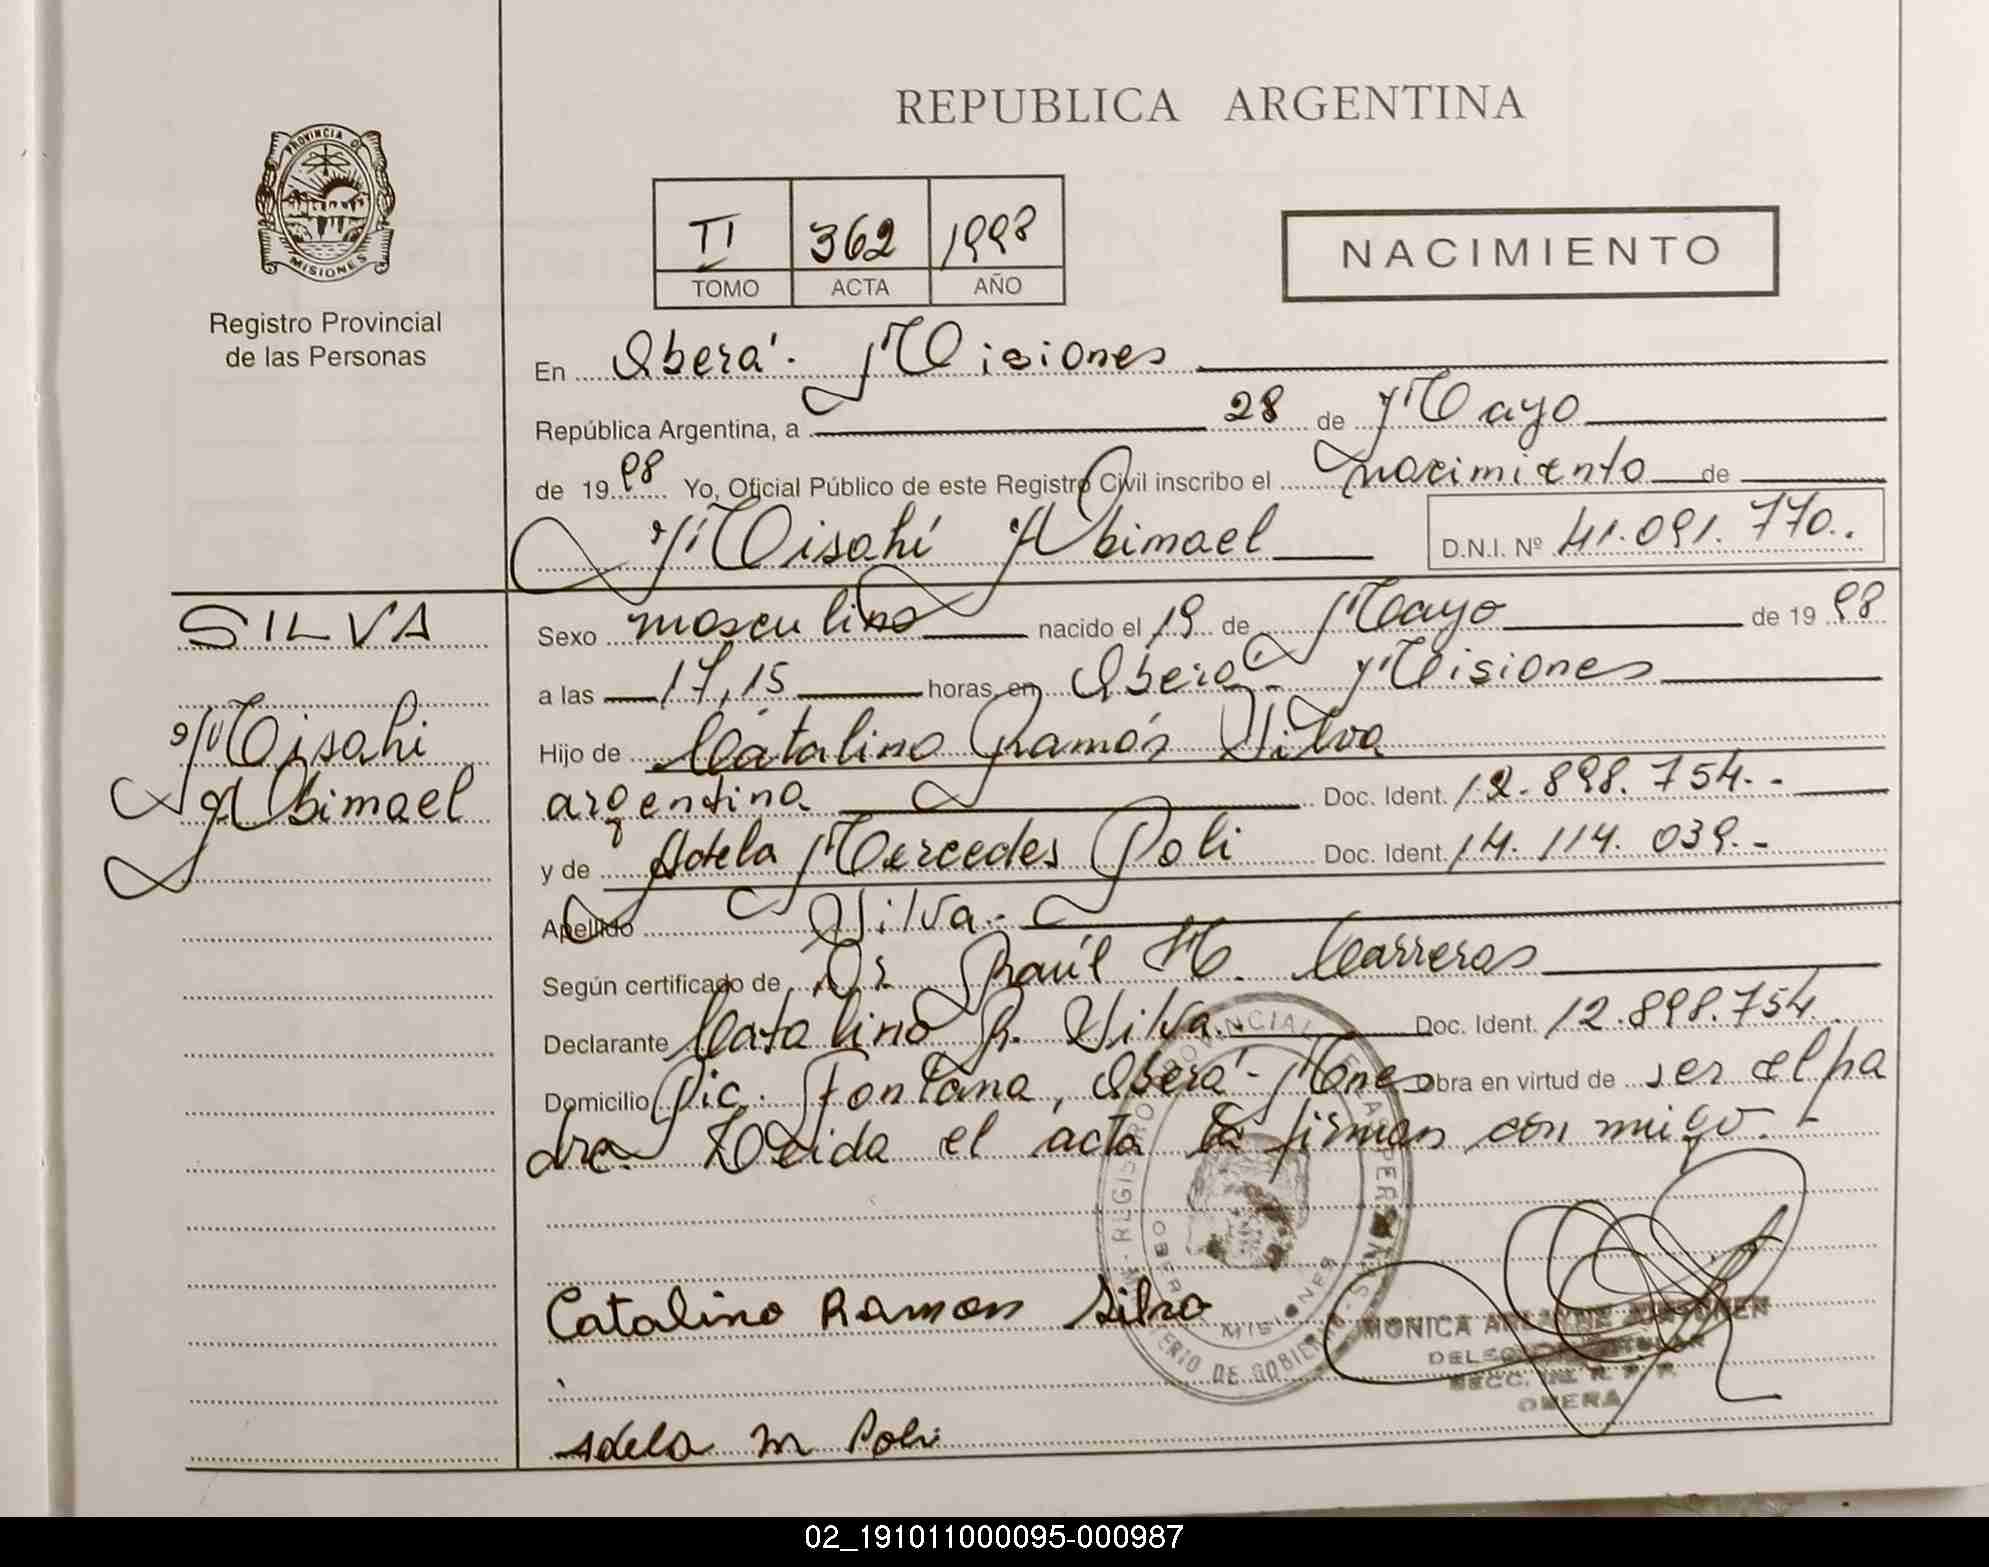 REPUBLICA ARGENTINA
PROVINCIA DE
MISIONES
Registro Provincial
de las Personas
II 362 1998
TOMO ACTA AÑO
NACIMIENTO
En Oberá - Misiones
República Argentina, a 28 de Mayo
de 1998 Yo, Oficial Público de este Registro Civil inscribo el nacimiento de
Misahí Abimael D.N.I. Nº 41.091.770..
SILVA
Misahi
Abimael
Sexo masculino nacido el 19 de Mayo de 1998
a las 17,15 horas, en Oberá - Misiones
Hijo de Catalino Ramón Silva
argentina Doc. Ident. 12.898.754.-
y de Adela Mercedes Poli Doc. Ident. 14.114.039.-
Apellido Silva.-
Según certificado de Dr. Raúl H. Carreras
Declarante Catalino R. Silva.- Doc. Ident. 12.898.754
Domicilio Pic. Fontana, Oberá - Mnes Obra en virtud de ser el pa
dre. Leida el acta la firman con migo.-
Catalino Ramon Silva
Adela M Poli
MISIONES
MONICA
OBERA
02_191011000095-000987